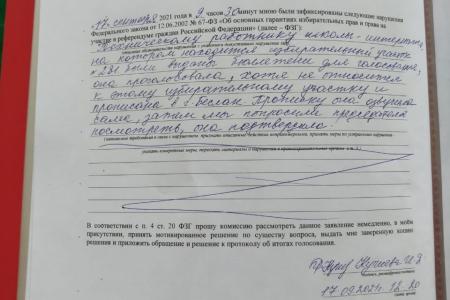 17 сентября 2021 года в 9 часов 30 минут мною были зафиксированы следующие нарушения
Федерального закона от 12.06.2002 № 67-ФЗ «Об основных гарантиях избирательных прав и права на
участие в референдуме граждан Российской Федерации» (далее – ФЗГ):
Техническому работнику школы-интерната,
на котором находится избирательный участок
были выданы бюллетени для голосования,
она проголосовала, хотя не относится
к этому избирательному участку и
прописана в г. Беслан. Прописку она озвучила
сама, затем мы попросили председателя
посмотреть, она подтвердила.
В соответствии с п. 4 ст. 20 ФЗГ прошу комиссию рассмотреть данное заявление немедленно, в моём
присутствии, принять мотивированное решение по существу вопроса, выдать мне заверенную копию
решения и приложить обращение и решение к протоколу об итогах голосования.
17.09.2021 12.20